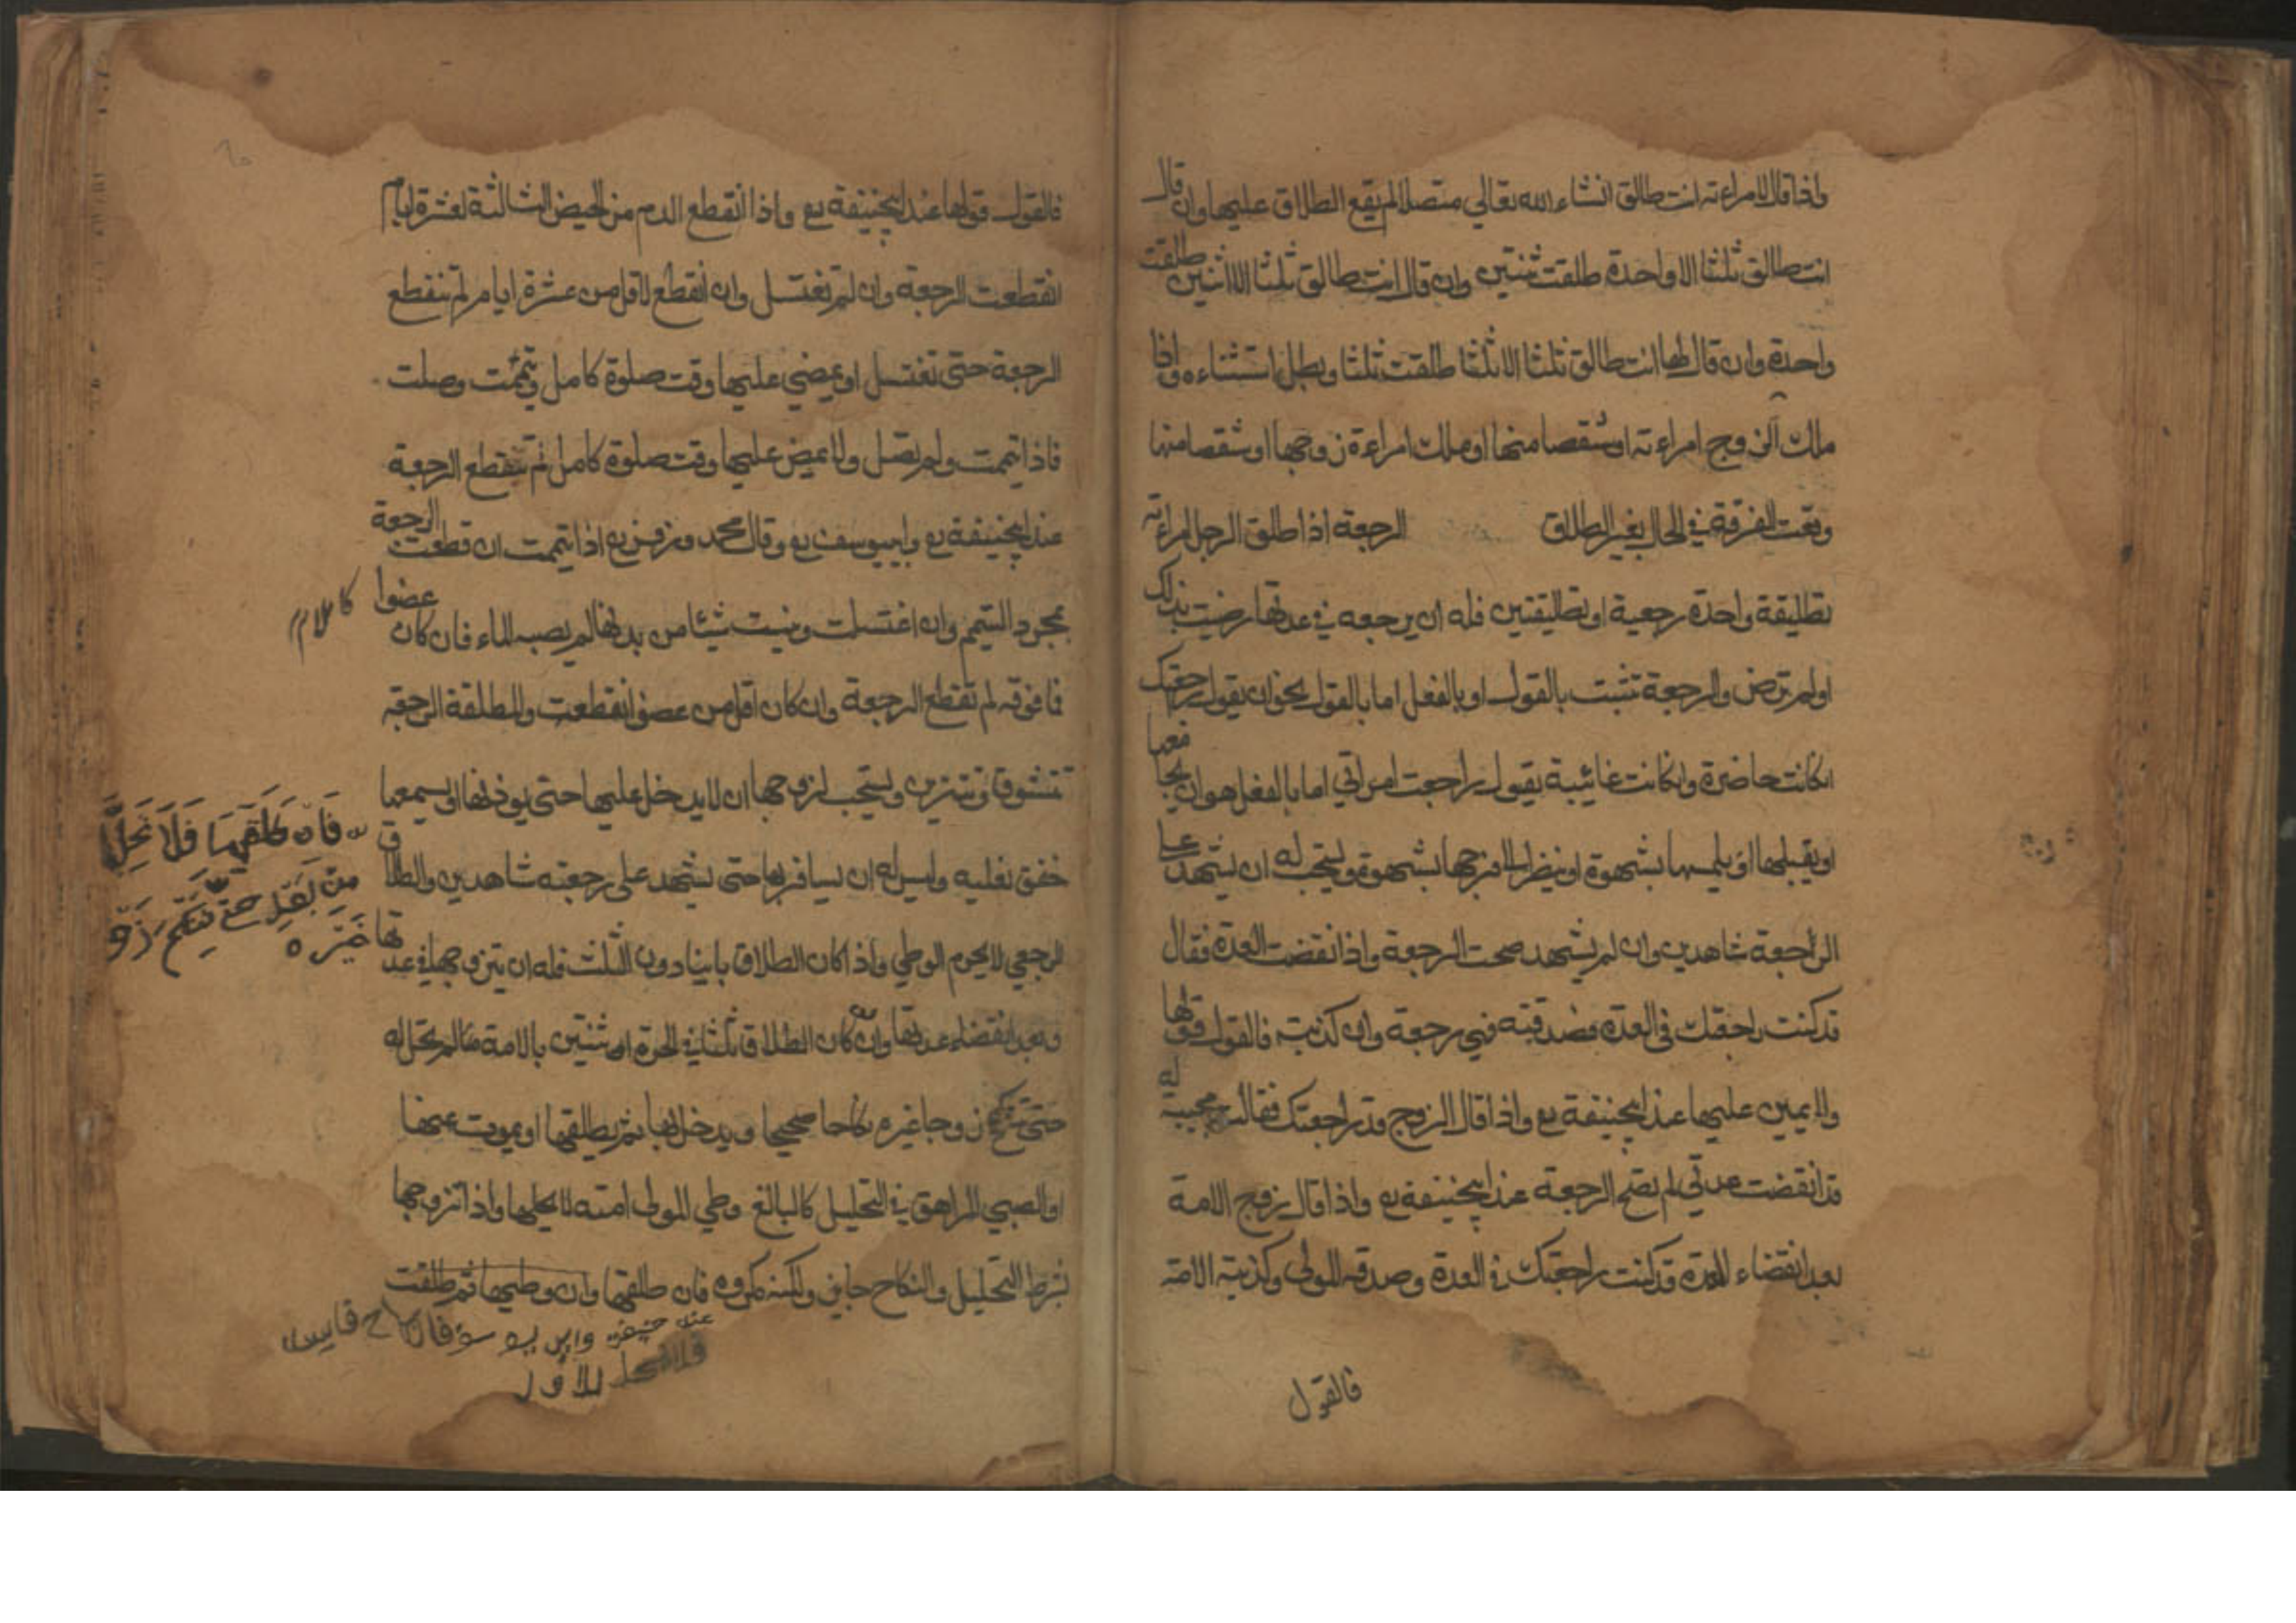 واذا قال لامراءته انت طالق انشاء الله تعالي متصلا لم يقع الطلاق عليها وان قال
انت طالق ثلثا الا واحدة طلقت ثنتين وان قال انت طالق ثلثا الا اثنين طلقت
واحدة وان قال لها انت طالق ثلثا الا ثلثا طلقت ثلثا وبطل استثناءه واذا
ملك الزوج امراءته او شقصا منها او ملك امراءة زوجها او شقصا منها
وقعت الفرقة في الحال بغير الطلاق الرجعة اذا طلق الرجل امراءته
تطليقة واحدة رجعية او تطليقتين فله ان يرجعه في عدتها رضيت بذلك
او لم ترض والرجعة تثبت بالقول او بالفعل اما بالقول نحو ان يقول رجعتك
انكانت حاضرة وانكانت غائيبة يقول راجعت امراتي اما بالفعل هو ان يجا
معها
او يقبلها او يلمسها بشهوة او ينظر الي فرجها بشهوة ويستحب له ان يشهد علي
الراجعة شاهدين وان لم يشهد صحت الرجعة واذا نقضت العدة فقال
قد كنت راجعتك في العدة فصدقته فهي رجعة وان كذبته فالقول قولها
ولا يمين عليها عند ابيحنيفة رح واذا قال الزوج قد راجعتك فقالت مجيبة له
قد انقضت عدتي لم تصح الرجعة عند ابيحنيفة رح واذا قال زوج الامة
بعد انقضاء العدة قد كنت راجعتك في العدة وصدقه المولى وكذبته الامة
فالقول
فالقول قولها عند ابيحنيفة رح واذا انقطع الدم من الحيض الثالثة لعشرة ايام
انقطعت الرجعة وان لم تغتسل وان انقطع لاقل من عشرة ايام لم تنقطع
الرجعة حتى تغتسل او يمضي عليها وقت صلوة كامل وتيممت وصلت
فاذا تيممت ولم تصل ولا يمض عليها وقت صلوة كامل لم تنقطع الرجعة
عند ابيحنيفة رح وابييوسف رح وقال محمد وزفر رح اذا تيممت انقطعت الرجعة
بمجرد التيمم وان اغتسلت ونسيت شيئا من بدنها لم يصبه الماء فان كان عضوا كاملا
فما فوقه لم تقطع الرجعة وان كان اقل من عضو انقطعت والمطلقة الرجعة
تتشوق وتتزين ويستحب لزوجها ان لا يدخل عليها حتى يوذنها او يسمعها
خفق نعليه وليس له ان يسافر بها حتى يشهد على رجعته شاهدين والطلاق
الرجعي لا يحرم الوطي واذا كان الطلاق باينا دون الثلث فله ان يتزوجها في عدتها
وبعد انقضاء عدتها وان كان الطلاق ثلثا في الحرة او ثنتين بالامة فالم تحل له
حتى تنكح زوجا غيره نكاحا صحيحا ويدخل بها ثم يطلقها او يموت عنها
او الصبي المراهق في التحليل كالبالغ وطي المولى امته لا يحلها واذا تزوجها
بشرط التحليل والنكاح جايز ولكنه مكروه فان طلقها وان وطيها ثم طلقت
فلا تحل للاول
فَاِن طَلَّقَهَا فَلَا تَحِلُّ
مِن بَعْدِ حَتَّى تَنكِحَ زَوْ
غَيْرَه